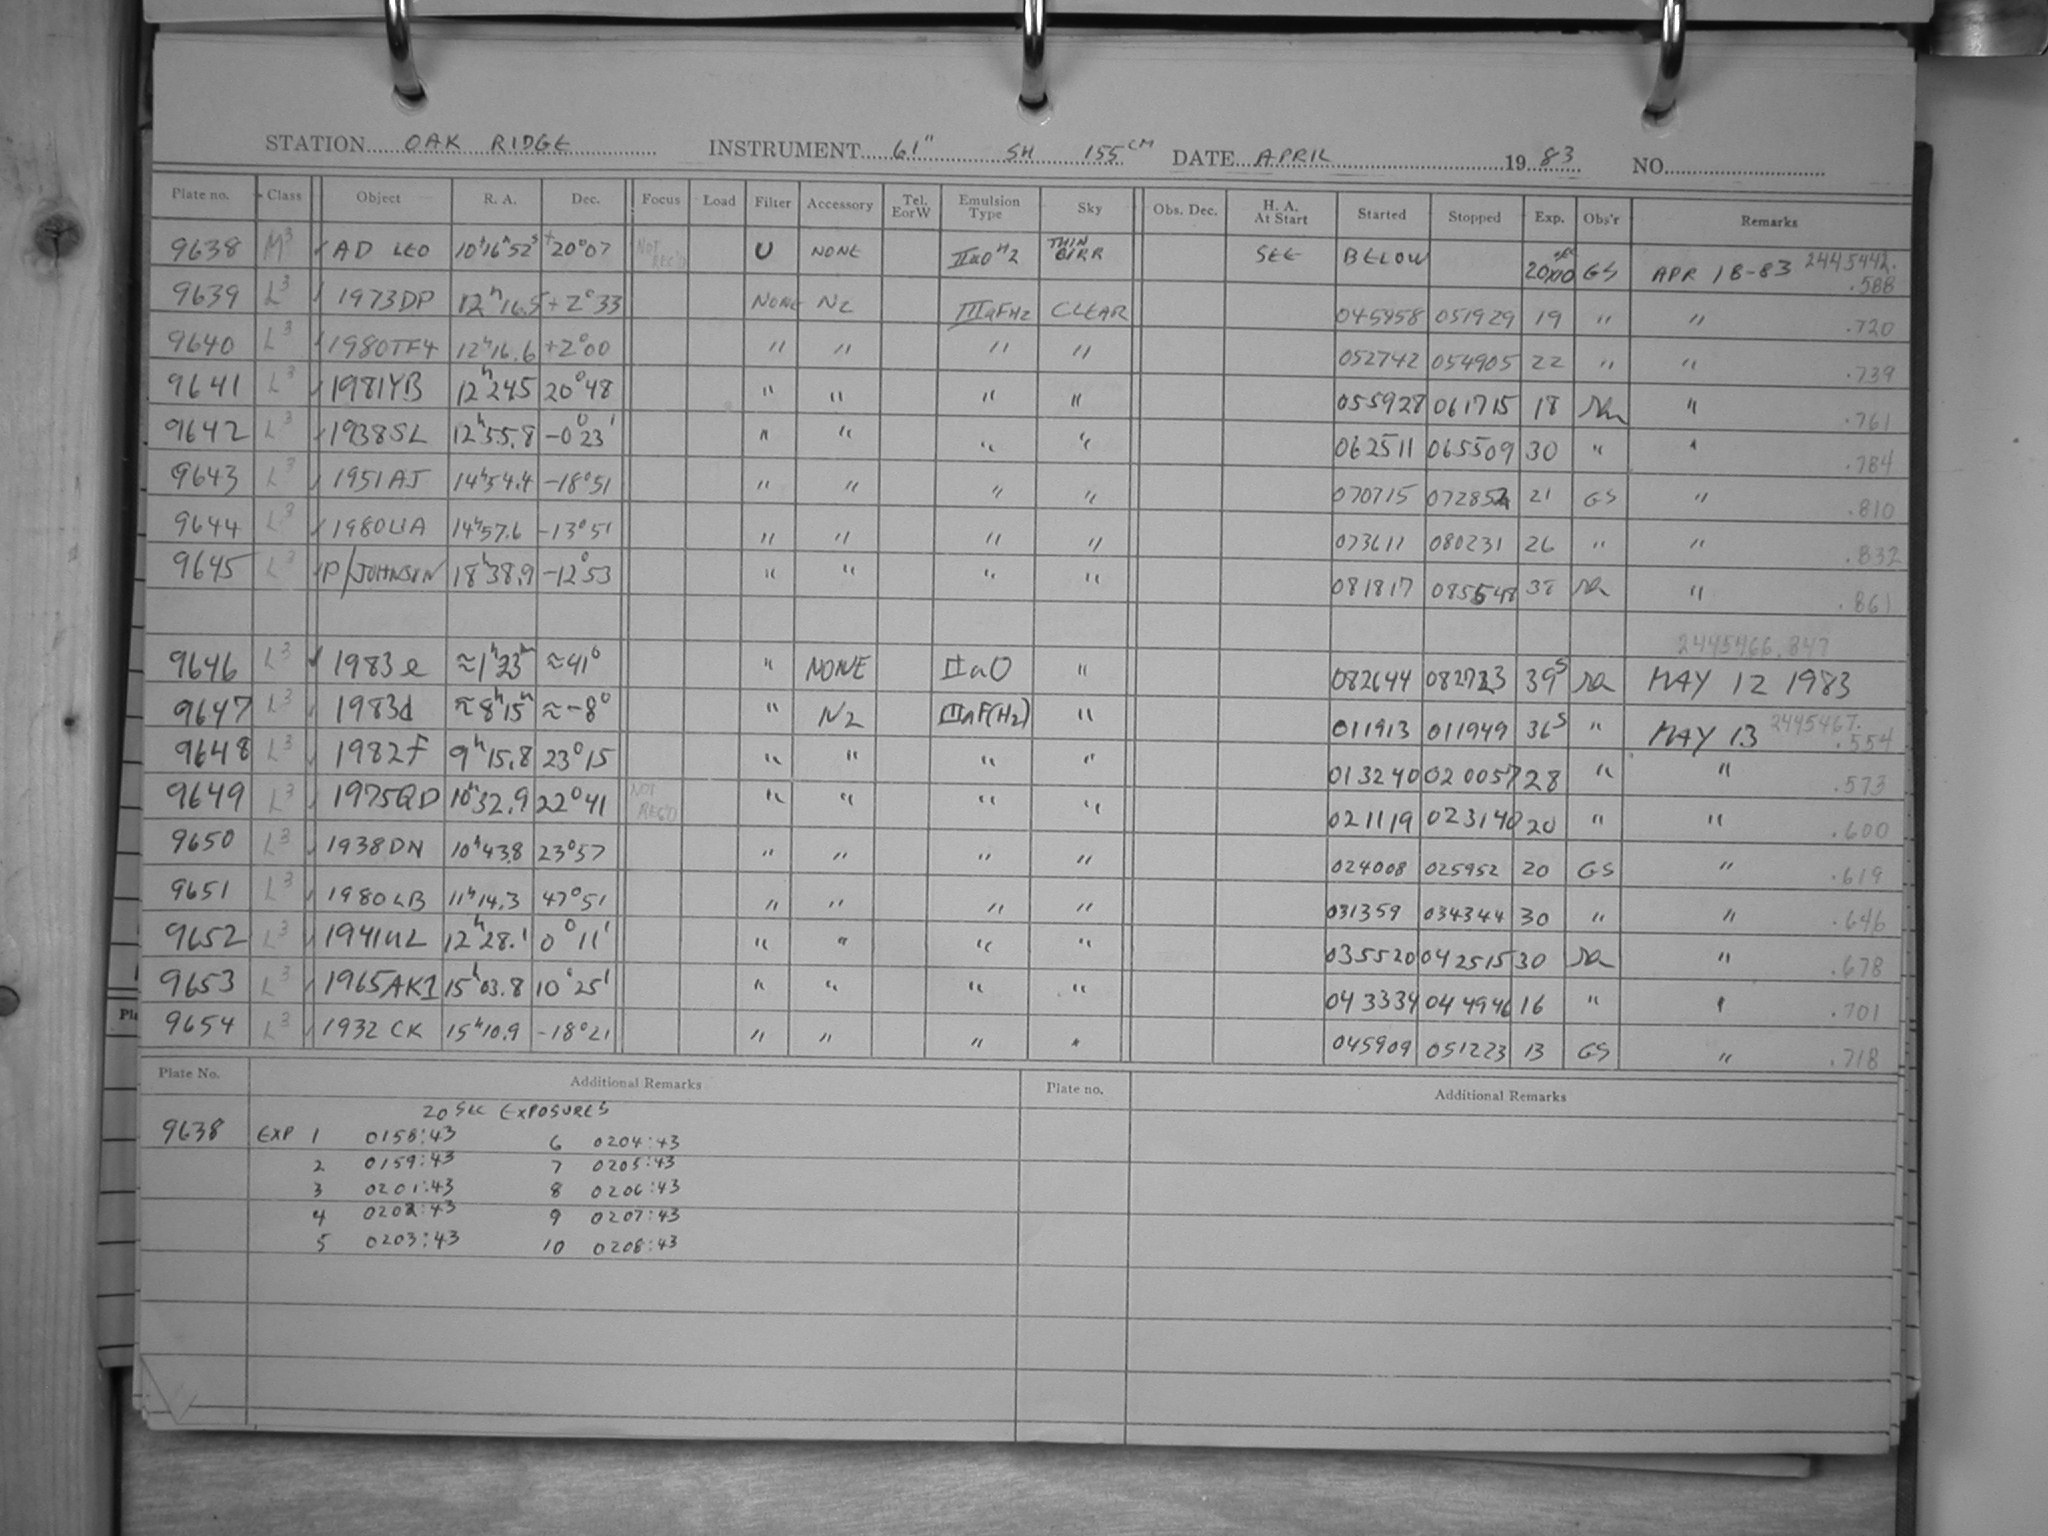 STATION OAK RIDGE INSTRUMENT 61" SH 155 CM DATE APRIL 19 83 NO.
Plate no. Class Object R. A. Dec. Focus Load Filter Accessory Tel. EorW Emulsion Type Sky Obs. Dec. H. A. At Start Started Stopped Exp. Obs'r Remarks
9638 M3 AD LEO 10h16m52s +20°07 NOT REC'D U NONE IIaO H2 THIN CIRR SEE BELOW GS APR 18-83 2445442. .588
9639 L3 1973DP 12h16.5 +2°33 NONE N2 IIIaF H2 CLEAR 045958 051929 19 " " .720
9640 L3 1980TF4 12h16.6 +2°00 " " " " 052742 054905 22 " " .739
9641 L3 1981YB 12h24.5 20°48 " " " " 055928 061715 18 " .761
9642 L3 1938SL 12h55.8 -0°23' " " " " 062511 065509 30 " " .784
9643 L3 1951AJ 14h54.4 -18°51 " " " " 070715 072852 21 GS " .810
9644 L3 1980UA 14h57.6 -13°51 " " " " 073611 080231 26 " " .832
9645 L3 P/JOHNSON 18h38.9 -12°53 " " " " 081817 085648 38 " .861
2445466.847
9646 L3 1983e ≈1h23m ≈41° " NONE IIaO " 082644 082723 39s MAY 12 1983
9647 L3 1983d ≈8h15m ≈-8° " N2 IIIaF(H2) " 011913 011949 36s " MAY 13 2445467. .554
9648 L3 1982F 9h15.8 23°15 " " " " 013240 020057 28 " " .573
9649 L3 1975QD 10h32.9 22°41 NOT REC'D " " " " 021119 023140 20 " " .600
9650 L3 1938DN 10h43.8 23°57 " " " " 024008 025952 20 GS " .619
9651 L3 1980LB 11h14.3 47°51 " " " " 031359 034344 30 " " .646
9652 L3 1941UL 12h28.1 0°11' " " " " 035520 042515 30 " .678
9653 L3 1965AK1 15h03.8 10°25' " " " " 043334 044946 16 " " .701
9654 L3 1932CK 15h10.9 -18°21 " " " " 045909 051223 13 GS " .718
Plate No. Additional Remarks Plate no. Additional Remarks
20 SEC EXPOSURES
9638 EXP 1 0158:43 6 0204:43
2 0159:43 7 0205:43
3 0201:43 8 0206:43
4 0202:43 9 0207:43
5 0203:43 10 0208:43